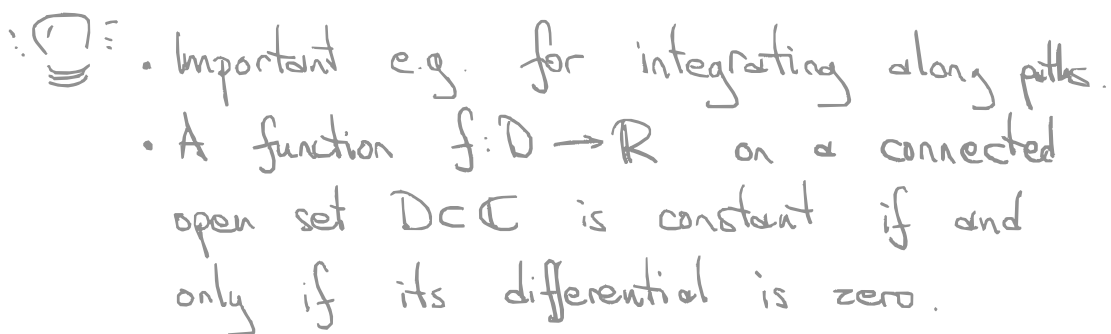 • Important e.g. for integrating along paths.
• A function f: D → ℝ on a connected
open set D ⊂ ℂ is constant if and
only if its differential is zero.